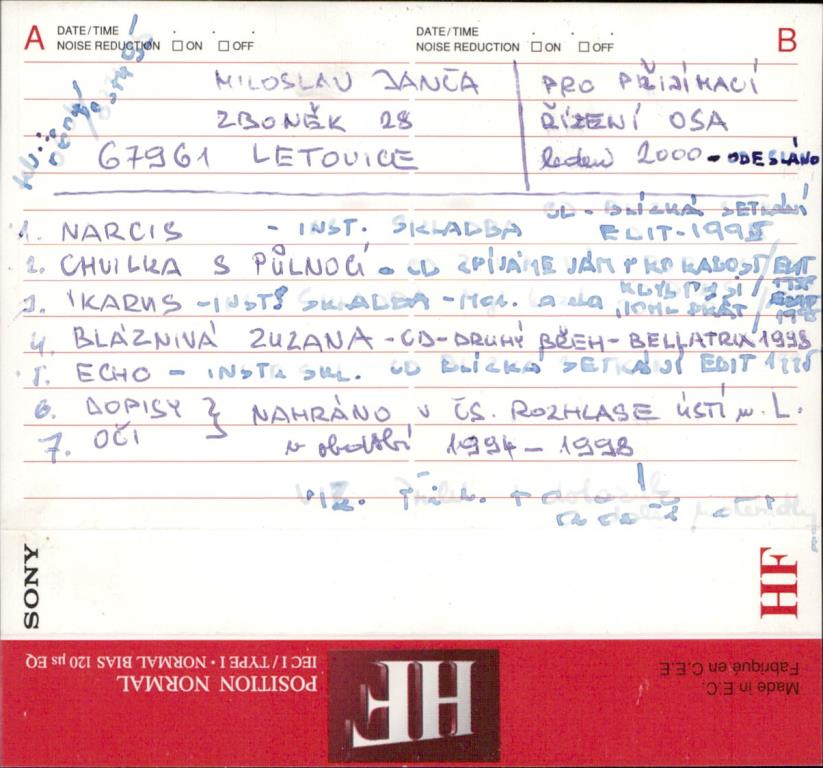 A DATE/TIME
NOISE REDUCTION ☐ ON ☐ OFF
DATE/TIME B
NOISE REDUCTION ☐ ON ☐ OFF
MILOSLAV JANČA
ZBONĚK 28
67961 LETOVICE
PRO PŘIJÍMACÍ
ŘÍZENÍ OSA
leden 2000 - ODESLÁNO
CD - BLÍZKÁ SETKÁNÍ
1. NARCIS - INST. SKLADBA EDIT-1995
2. CHVILKA S PŮLNOCÍ - CD ZPÍVÁME VÁM PRO RADOST/EDIT
3. IKARUS - INST. SKLADBA
4. BLÁZNIVÁ ZUZANA - CD - DRUHÝ BŘEH - BELLATRIX 1998
5. ECHO - INSTR. SKL. CD BLÍZKÁ SETKÁNÍ EDIT 1995
6. DOPISY } NAHRÁNO V ČS. ROZHLASE ÚSTÍ n. L.
7. OČI v období 1994 - 1998
VIZ.
SONY
HF
POSITION NORMAL
IEC I / TYPE I • NORMAL BIAS 120 µs EQ
HF
Made in E.C.
Fabriqué en C.E.E.